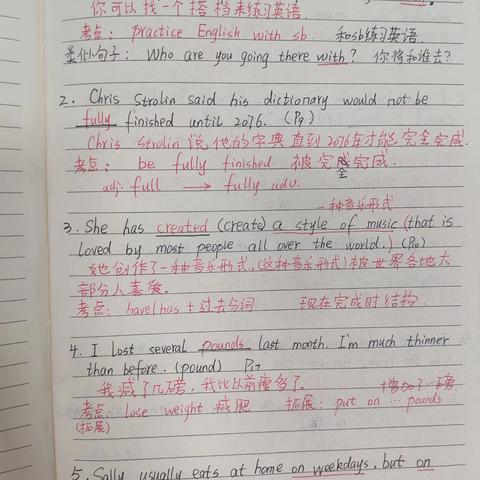 你可以找一个搭档来练习英语.
考点: practice English with sb. 和sb练习英语.
类似句子: Who are you going there with? 你将和谁去?
2. Chris Strolin said his dictionary would not be
fully finished until 2076. (P9)
Chris Strolin 说他的字典直到2076年才能完全完成.
考点: be fully finished 被完全完成.
adj. full → fully adv.
一种音乐形式
3. She has created (create) a style of music (that is
loved by most people all over the world.) (P10)
她创作了一种音乐形式, (这种音乐形式)被世界各地大
部分人喜爱.
考点: have/has + 过去分词 现在完成时结构.
4. I lost several pounds last month. I'm much thinner
than before. (pound) P17
我减了几磅, 我比以前瘦多了.
考点: lose weight 减肥 拓展: put on ... pounds
(拓展)
5. Sally usually eats at home on weekdays, but on